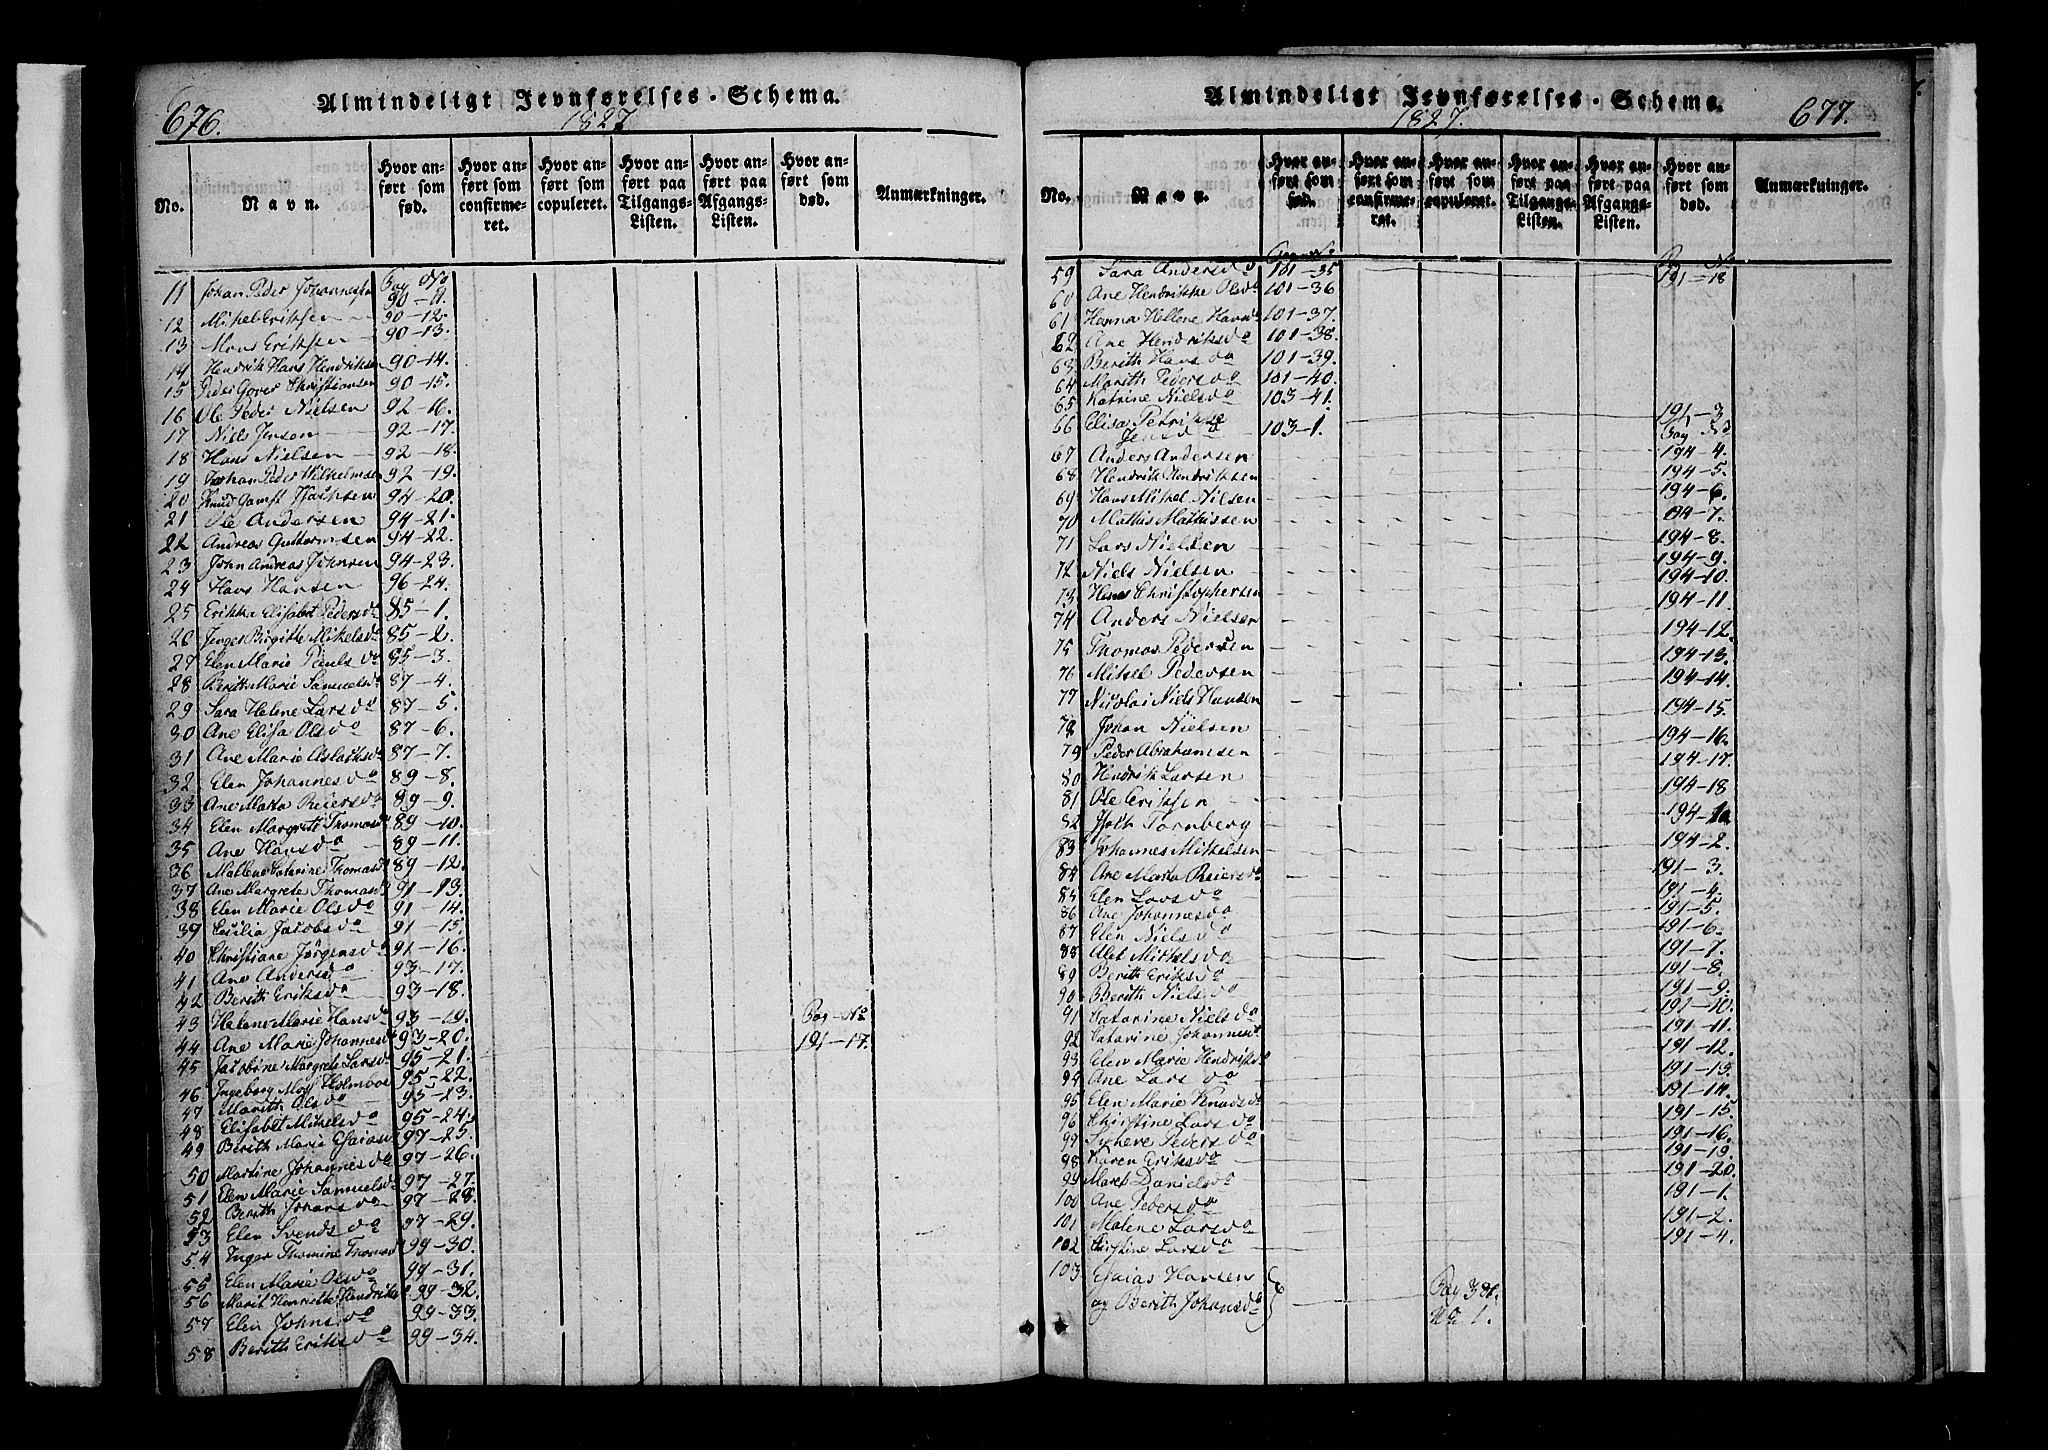 676.
Almindeligt Jevnførelses-Schema.
1827
No.
Navn.
Hvor anført som fød.
Hvor anført som confirmeret.
Hvor anført som copuleret.
Hvor anført paa Tilgangs-Listen.
Hvor anført paa Afgangs-Listen.
Hvor anført som død.
Anmærkninger.
Pag No
11 Johan Peder Johannesen 90-11.
12 Mikel Eriksen 90-12.
13 Mons Eriksen 90-13.
14 Hendrik Hans Hendriksen 90-14.
15 Peder Gover Christiansen 90-15.
16 Ole Peder Nielsen 92-16.
17 Niels Jensen 92-17.
18 Hans Nielsen 92-18.
19 Johan Peder Wilhelmsen 92-19.
20 Knud 94-20.
21 Ole Andersen 94-21.
22 Andreas Guttormsen 94-22.
23 John Andreas Johnsen 94-23.
24 Hans Hansen 96-24.
25 Erikka Elisabet Pedersdª 85-1.
26 Inger Birgitte Mikelsdª 85-2.
27 Elen Marie Paulsdª 85-3.
28 Berith Marie Samuelsdª 87-4.
29 Sara Helene Larsdª 87-5.
30 Ane Elisa Olsdª 87-6.
31 Ane Marie Aslaksdª 87-7.
32 Elen Johannesdª 89-8.
33 Ane Marta Reiersdª 89-9.
34 Elen Margrete Thomasdª 89-10.
35 Ane Hansdª 89-11.
36 Mallene Catarine Thomasdª 89-12.
37 Ane Margrete Thomasdª 91-13.
38 Elen Marie Olsdª 91-14.
39 Cecilia Jacobsdª 91-15.
40 Christiane Jørgensdª 91-16.
41 Ane Andersdª 93-17.
42 Berith Eriksdª 93-18.
43 Helene Marie Hansdª 93-19. Pag-No
44 Ane Marie Johannesdª 93-20. 191-17.
45 Jacobine Margrete Larsdª 95-21.
46 Ingeborg Holmboe 95-22.
47 Marith Olsdª 95-23.
48 Elisabet Mikelsdª 95-24.
49 Berith Marie Esaiasdª 97-25.
50 Martine Johannesdª 97-26.
51 Elen Marie Samuelsdª 97-27.
52 Berith Johansdª 97-28.
53 Elen Svendsdª 97-29.
54 Inger Thomine Thomasdª 99-30.
55 Elen Marie Olsdª 99-31.
56 Marit Henriette Hendriksdª 99-32.
57 Elen Johnsdª 99-33.
58 Berith Eriksdª 99-34.
Almindeligt Jevnførelses-Schema.
1827.
677.
No.
Navn.
Hvor anført som fød.
Hvor anført som confirmeret.
Hvor anført som copuleret.
Hvor anført paa Tilgangs-Listen.
Hvor anført paa Afgangs-Listen.
Hvor anført som død.
Anmærkninger.
Pag-No
59 Sara Andersdª 101-35 191-18
60 Ane Hendrikke Olsdª 101-36
61 Hanna Hellene Hansdª 101-37.
62 Ane Hendriksdª 101-38.
63 Berith Hansdª 101-39.
64 Marith Pedersdª 101-40.
65 Katrine Nielsdª 103-41.
66 Elisa Petrikke Jensdª 103-1. 191-3
Pag No
67 Anders Andersen 194-4.
68 Hendrik Hendriksen 194-5.
69 Hans Mikel Nilsen 194-6.
70 Mathis Mathissen 194-7.
71 Lars Nielsen 194-8.
72 Niels Nielsen 194-9.
73 Hans Christophersen 194-10.
74 Anders Nielsen 194-11.
75 Thomas Pedersen 194-12.
76 Mikel Pedersen 194-13.
77 Nicolai Niels Hansen 194-14.
78 Johan Nielsen 194-15.
79 Peder Abrahamsen 194-16.
80 Hendrik Larsen 194-17.
81 Ole Eriksen 194-18
82 Tornberg
83 Johannes Mikelsen 194-2.
84 Ane Marta Reiersdª 191-3.
85 Elen Larsdª 191-4.
86 Ane Johannesdª 191-5.
87 Elen Nielsdª 191-6.
88 Alet Mikelsdª 191-7.
89 Berith Eriksdª 191-8.
90 Berith Nielsdª 191-9.
91 Catarine Nielsdª 191-10.
92 Catarine Johannesdª 191-11.
93 Elen Marie Hendriksdª 191-12.
94 Ane Larsdª 191-13.
95 Elen Marie Knudsdª 191-14.
96 Christine Larsdª 191-15.
99 Syneve Pedersdª 191-16.
98 Karen Eriksdª 191-19.
99 Maret Danielsdª 191-20.
100 Ane Pedersdª 191-1.
101 Malene Larsdª 191-2.
102 Kirstine Larsdª 191-4.
103 Esaias Hansen
og Berith Johansdª Pag
No 1.